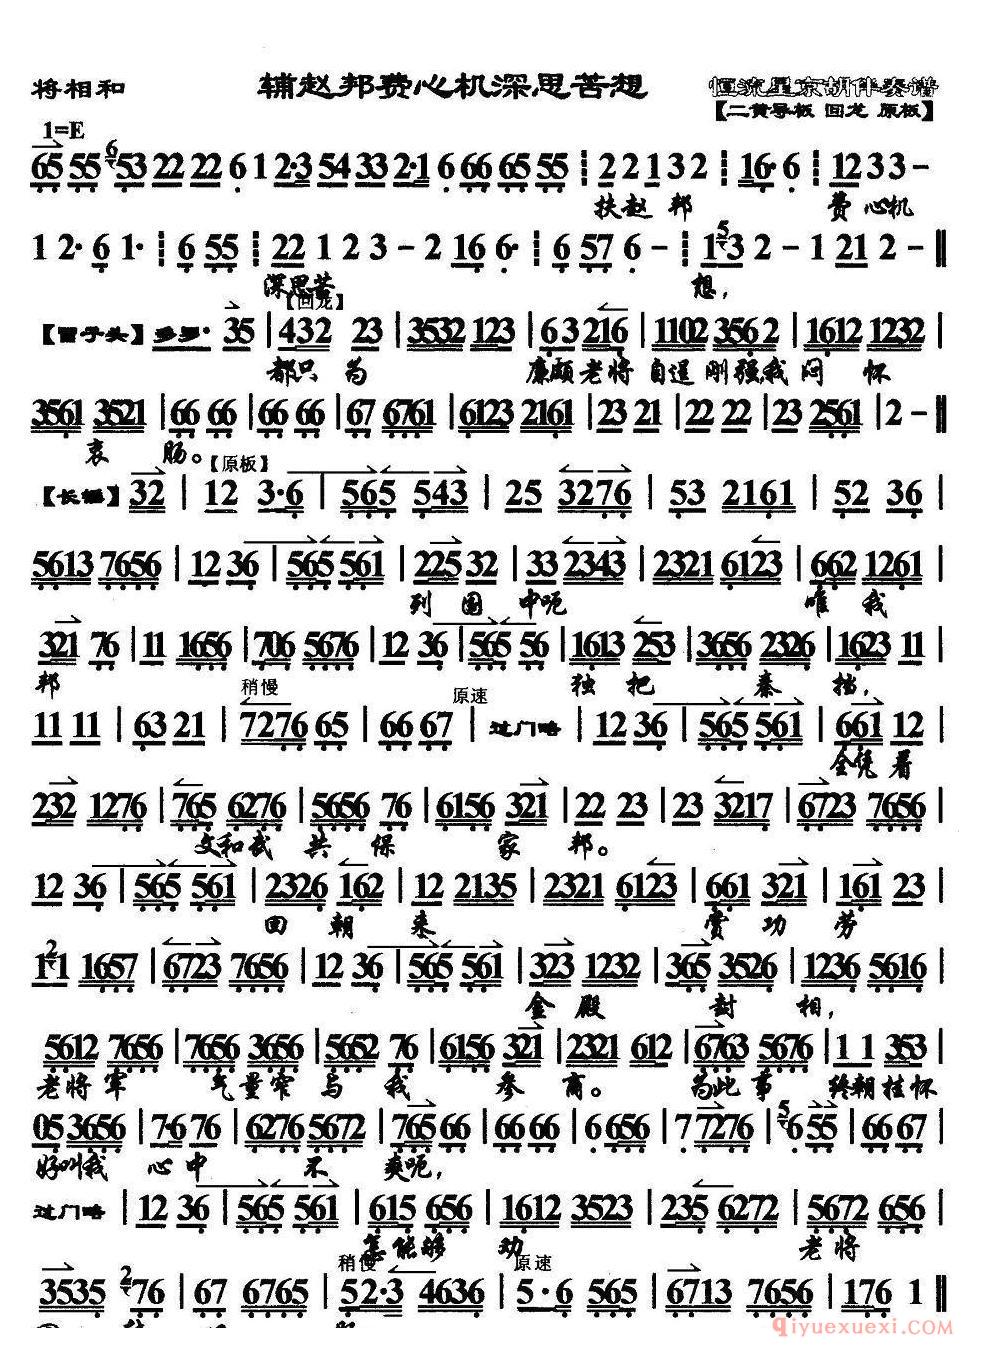 将相和 辅赵邦费心机深思苦想 恒流星京胡伴奏谱
【二黄导板 回龙 原板】
1=E
65 55 6 53 22 22 6 1 2·3 54 33 2·1 6 66 65 55 ┊ 2 2 1 3 2 ┊ 16· 6 ┊ 12 3 3 –
扶赵 邦 费 心机
1 2· 6 1· ┊ 6 55 ┊ 22 1 2 3 – 2 16 6· ┊ 6 57 6 – ┊ 1 5 3 2 – 1 21 2 – ‖
深思苦 想，
【冒子头】 多罗· 35 | 【回龙】 432 23 | 3532 123 | 6 3 216 | 1102 3562 | 1612 1232 |
都只 为 廉颇老将 自逞刚强我 闷 怀
3561 3521 | 66 66 | 66 66 | 67 6761 | 6123 2161 | 23 21 | 22 22 | 23 2561 | 2 – ‖
哀 肠。
【长锤】 32 | 【原板】 12 3·6 | 565 543 | 25 3276 | 53 2161 | 52 36 |
5613 7656 | 12 36 | 565 561 | 225 32 | 33 2343 | 2321 6123 | 662 1261 |
列 国 中呃 唯 我
321 76 | 11 1656 | 706 5676 | 12 36 | 565 56 | 1613 253 | 3656 2326 | 1623 11 |
邦 独 把 秦 挡，
11 11 | 63 21 | 稍慢 7276 65 | 66 67 | 原速 过门略 | 12 36 | 565 561 | 661 12 |
全凭 着
232 1276 | 765 6276 | 5656 76 | 6156 321 | 22 23 | 23 3217 | 6723 7656 |
文和武 共 保 家 邦。
12 36 | 565 561 | 2326 162 | 12 2135 | 2321 6123 | 661 321 | 161 23 |
回 朝 来 赏 功 劳
1 2 1 1657 | 6723 7656 | 12 36 | 565 561 | 323 1232 | 365 3526 | 1236 5616 |
金 殿 封 相，
5612 7656 | 7656 3656 | 5652 76 | 6156 321 | 2321 612 | 6763 5676 | 1 1 353 |
老将军 气量窄与 我 参 商。 为此 事 终朝挂怀
05 3656 | 7·6 76 | 6276 5672 | 765 66 | 66 66 | 6 656 | 7 7276 | 5 6 55 | 66 67 |
好叫我 心 中 不 爽呃，
过门略 | 12 36 | 565 561 | 615 656 | 1612 3523 | 235 6272 | 5672 656 |
怎能够 劝 老将
3535 2 76 | 67 6765 | 稍慢 52·3 4636 | 原速 5·6 565 | 6713 7656 | 176 1 ‖
qiyuexuexi.com